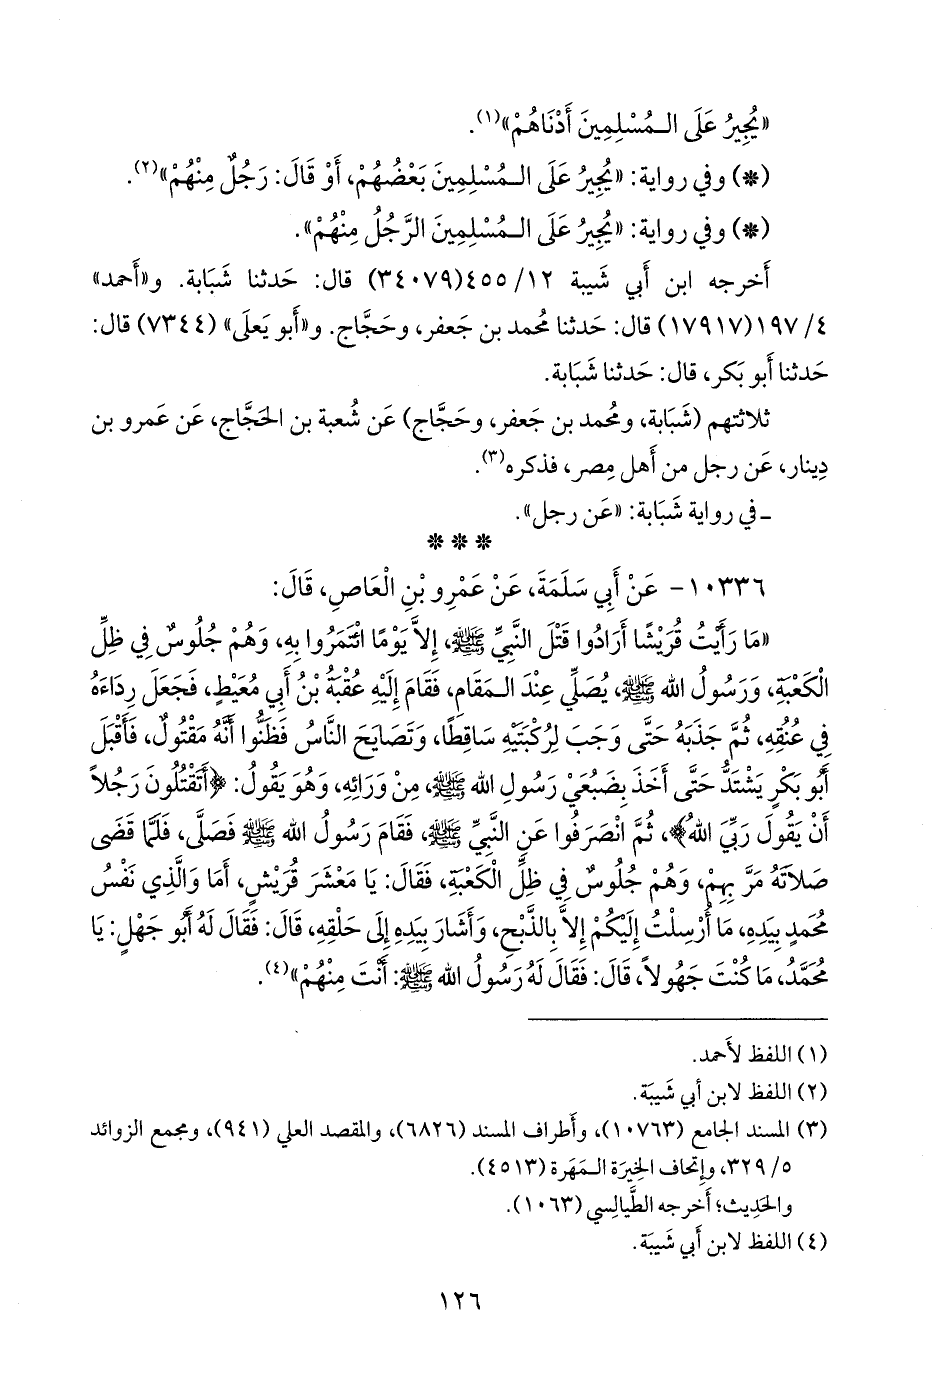 «يُجِيرُ عَلَى الـمُسْلِمِينَ أَدْنَاهُمْ»(١).
(*) وفي رواية: «يُجِيرُ عَلَى الـمُسْلِمِينَ بَعْضُهُمْ، أَوْ قَالَ: رَجُلٌ مِنْهُمْ»(٢).
(*) وفي رواية: «يُجِيرُ عَلَى الـمُسْلِمِينَ الرَّجُلُ مِنْهُمْ».
أَخرجه ابن أَبي شَيبة ١٢/ ٤٥٥(٣٤٠٧٩) قال: حَدثنا شَبَابة. و«أَحمد»
٤/ ١٩٧(١٧٩١٧) قال: حَدثنا مُحمد بن جَعفر، وحَجَّاج. و«أَبو يَعلى» (٧٣٤٤) قال:
حَدثنا أَبو بَكر، قال: حَدثنا شَبَابة.
ثلاثتهم (شَبَابة، ومُحمد بن جَعفر، وحَجَّاج) عَن شُعبة بن الحَجَّاج، عَن عَمرو بن
دِينار، عَن رجل من أَهل مِصر، فذكره(٣).
ـ في رواية شَبَابة: «عَن رجل».
* * *
١٠٣٣٦- عَنْ أَبِي سَلَمَةَ، عَنْ عَمْرِو بْنِ الْعَاصِ، قَالَ:
«مَا رَأَيْتُ قُرَيْشًا أَرَادُوا قَتْلَ النَّبِيِّ ﷺ، إِلاَّ يَوْمًا ائْتَمَرُوا بِهِ، وَهُمْ جُلُوسٌ فِي ظِلِّ
الْكَعْبَةِ، وَرَسُولُ الله ﷺ، يُصَلِّي عِنْدَ الـمَقَامِ، فَقَامَ إِلَيْهِ عُقْبَةُ بْنُ أَبِي مُعَيْطٍ، فَجَعَلَ رِدَاءَهُ
فِي عُنُقِهِ، ثُمَّ جَذَبَهُ حَتَّى وَجَبَ لِرُكْبَتَيْهِ سَاقِطًا، وَتَصَايَحَ النَّاسُ فَظَنُّوا أَنَّهُ مَقْتُولٌ، فَأَقْبَلَ
أَبُو بَكْرٍ يَشْتَدُّ حَتَّى أَخَذَ بِضَبُعَيْ رَسُولِ الله ﷺ، مِنْ وَرَائِهِ، وَهُوَ يَقُولُ: ﴿أَتَقْتُلُونَ رَجُلاً
أَنْ يَقُولَ رَبِّيَ اللهُ﴾، ثُمَّ انْصَرَفُوا عَنِ النَّبِيِّ ﷺ، فَقَامَ رَسُولُ الله ﷺ فَصَلَّى، فَلَمَّا قَضَى
صَلاَتَهُ مَرَّ بِهِمْ، وَهُمْ جُلُوسٌ فِي ظِلِّ الْكَعْبَةِ، فَقَالَ: يَا مَعْشَرَ قُرَيْشٍ، أَمَا وَالَّذِي نَفْسُ
مُحَمدٍ بِيَدِهِ، مَا أُرْسِلْتُ إِلَيْكُمْ إِلاَّ بِالذَّبْحِ، وَأَشَارَ بِيَدِهِ إِلَى حَلْقِهِ، قَالَ: فَقَالَ لَهُ أَبُو جَهْلٍ: يَا
مُحَمَّدُ، مَا كُنْتَ جَهُولاً، قَالَ: فَقَالَ لَهُ رَسُولُ الله ﷺ: أَنْتَ مِنْهُمْ»(٤).
(١) اللفظ لأَحمد.
(٢) اللفظ لابن أَبي شَيبَة.
(٣) المسند الجامع (١٠٧٦٣)، وأَطراف المسند (٦٨٢٦)، والمقصد العلي (٩٤١)، ومجمع الزوائد
٥/ ٣٢٩، وإتحاف الخِيرَة الـمَهَرة (٤٥١٣).
والحَدِيث؛ أَخرجه الطَّيالِسي (١٠٦٣).
(٤) اللفظ لابن أَبي شَيبَة.
١٢٦